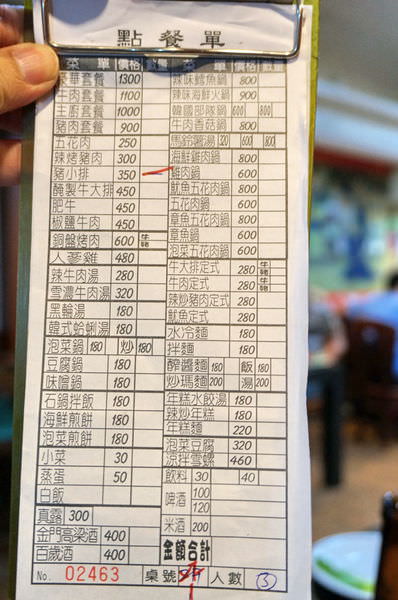 點餐單
菜單 價格 數量
豪華套餐 1300
牛肉套餐 1100
主廚套餐 1000
豬肉套餐 900
五花肉 250
辣烤豬肉 300
豬小排 350
醃製牛大排 450
肥牛 450
椒鹽牛肉 450
銅盤烤肉 600 牛 豬
人蔘雞 480
辣牛肉湯 280
雪濃牛肉湯 320
黑輪湯 180
韓式蛤蜊湯 180
泡菜鍋 180 炒 180
豆腐鍋 180
味噌鍋 180
石鍋拌飯 180
海鮮煎餅 180
泡菜煎餅 180
小菜 30
蒸蛋 50
白飯
真露 300
金門高粱酒 400
百歲酒 400
菜單 價格 數量
辣味鱈魚鍋 800
辣味海鮮火鍋 900
韓國部隊鍋 600 800
牛肉香菇鍋 800
馬鈴薯湯 320 600 800
海鮮雞肉鍋 800
雞肉鍋 600
魷魚五花肉鍋 600
五花肉鍋 600
章魚五花肉鍋 600
章魚鍋 600
泡菜五花肉鍋 600
牛大排定式 280 牛 豬
牛肉定式 280 牛 豬
辣炒豬肉定式 280
魷魚定式 280
水冷麵 180
拌麵 180
醡醬麵 180 飯 180
炒瑪麵 200 湯 200
年糕水餃湯 180
辣炒年糕 180
年糕麵 220
泡菜豆腐 320
涼拌雪螺 460
飲料 30 40
啤酒 100 120
米酒 200
金額合計
No. 02463 桌號 人數 3